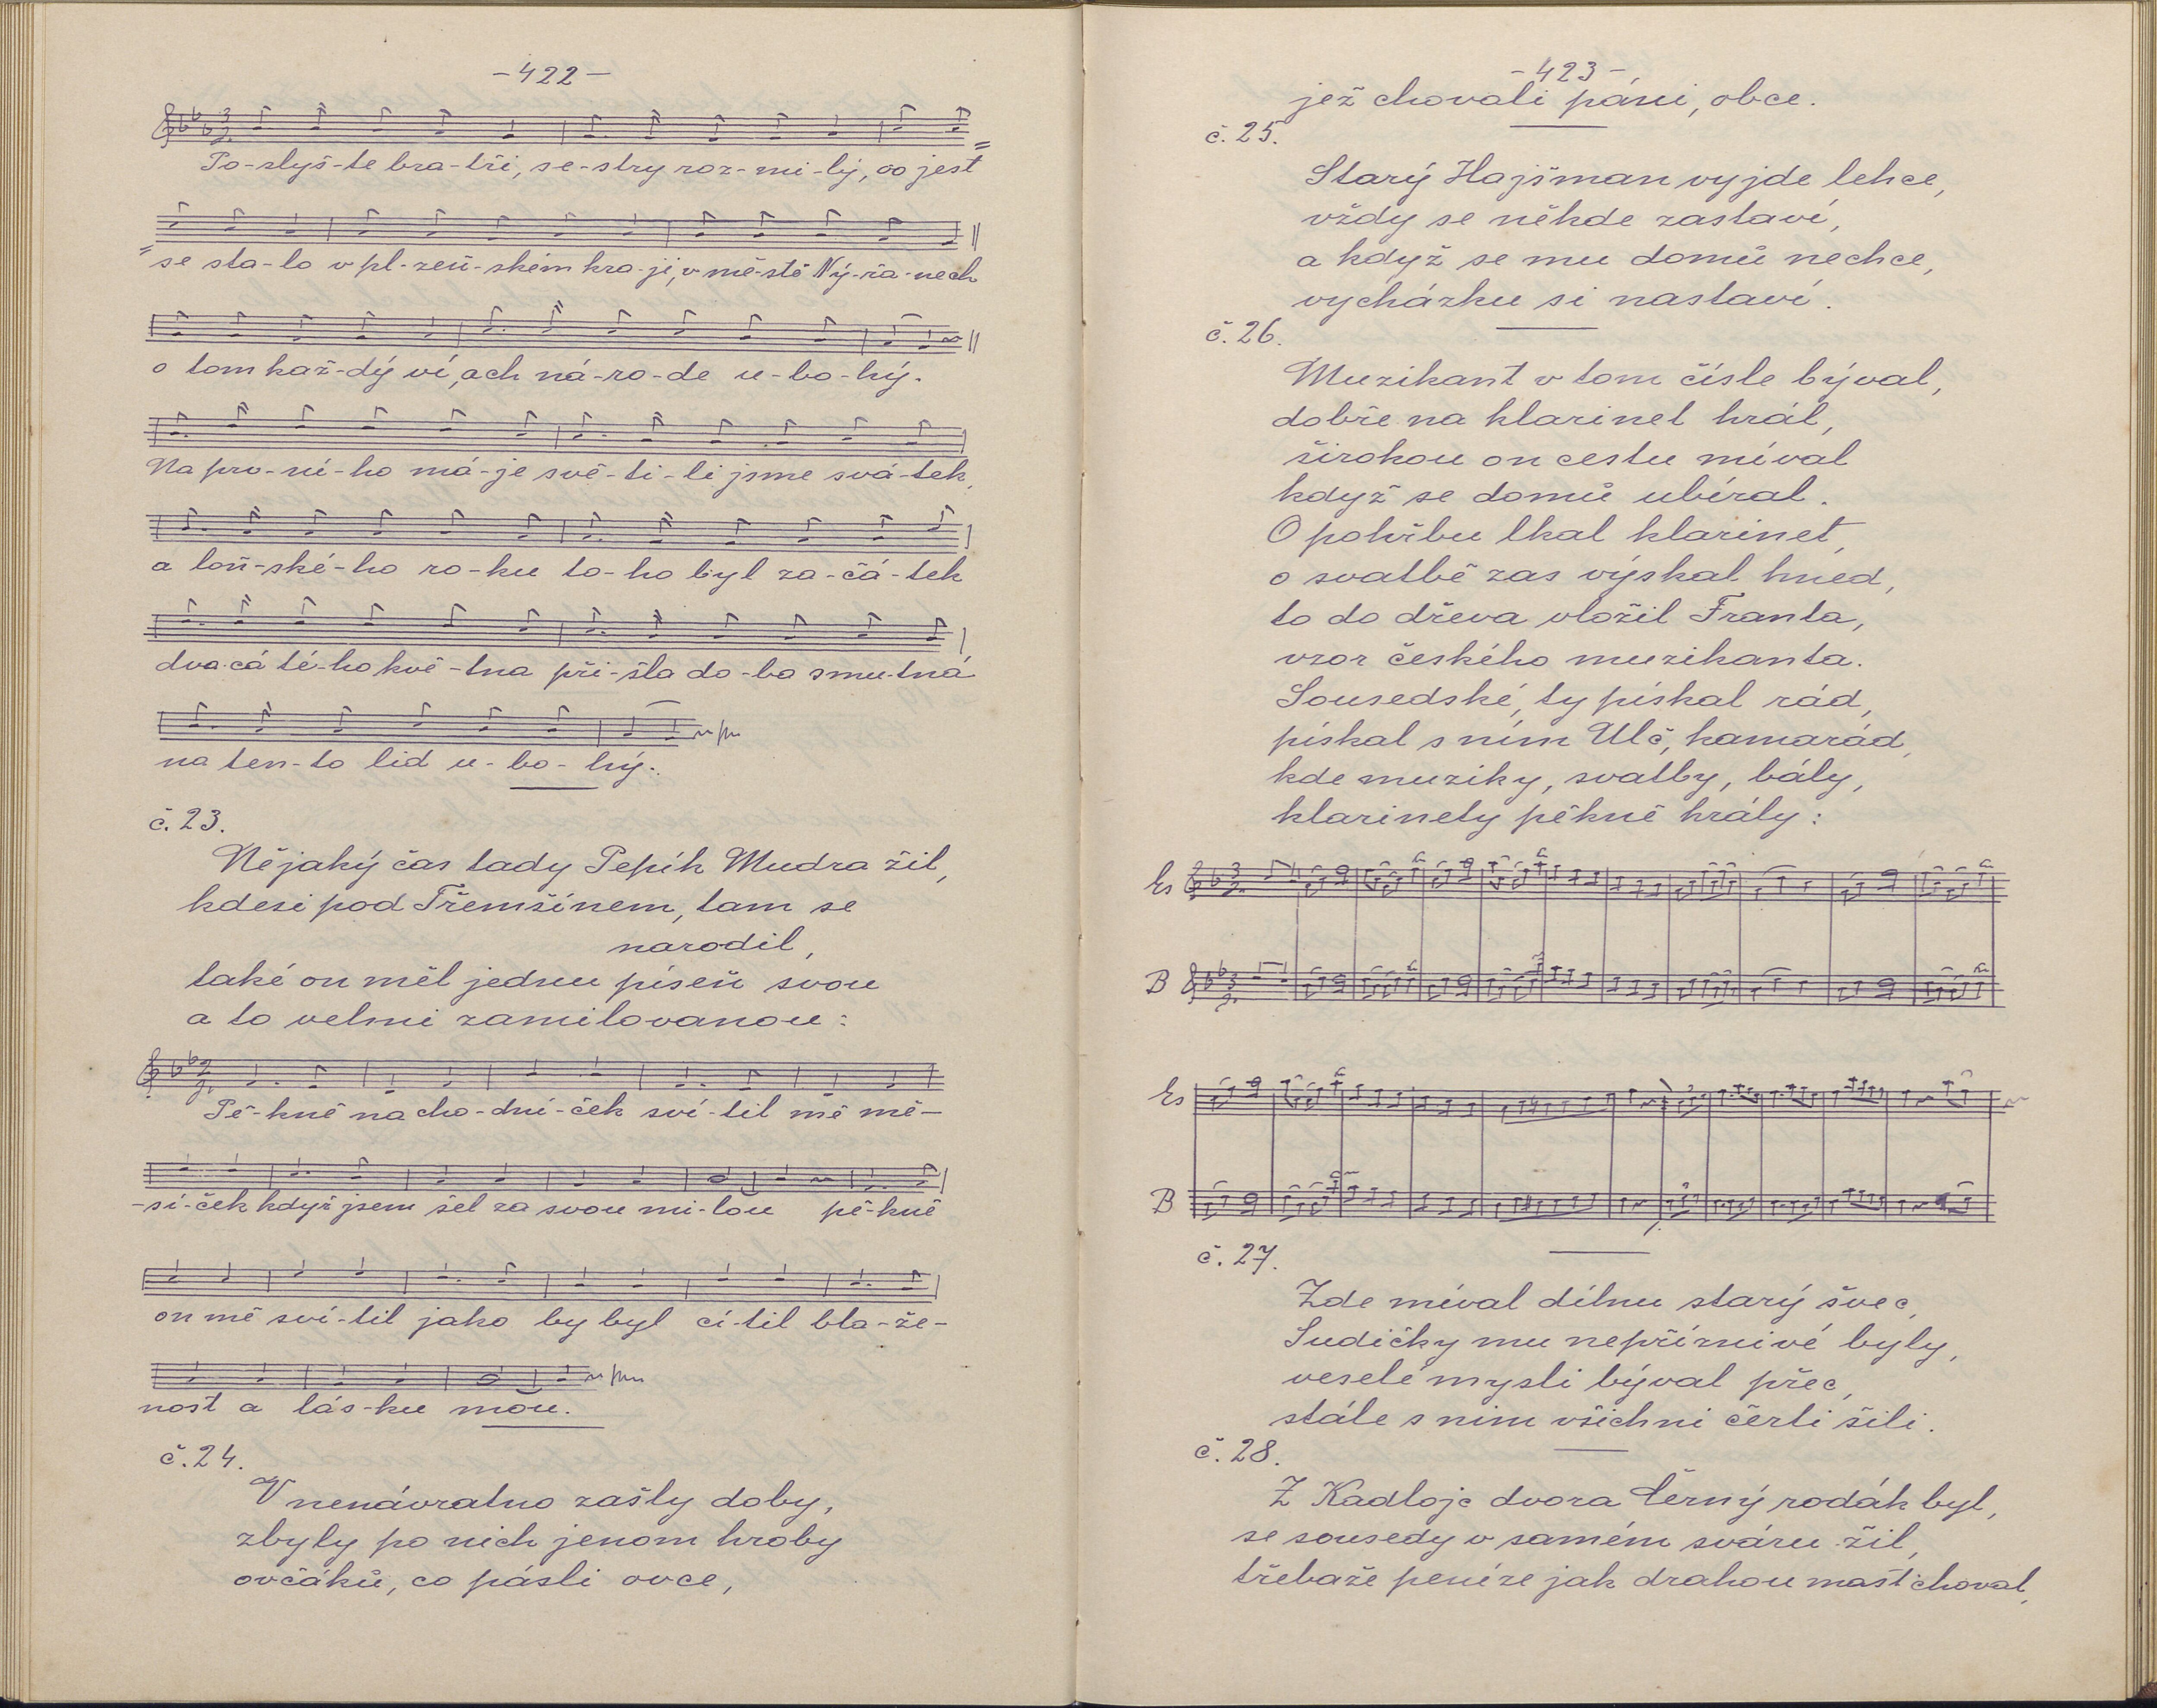 -422-
Po-slyš-te bra-tři, se-stry roz-mi-lý, co jest
se sta-lo v pl-zeň-ském kra-ji, v mě-stě Ný-řa-nech
o tom kaž-dý ví, ach ná-ro-de u-bo-hý.
Na prv-ní-ho má-je svě-ti-li jsme svá-tek,
a loň-ské-ho ro-ku to-ho byl za-čá-tek
dva-cá té-ho kvě-tna při-šla do-ba smu-tná
na ten-to lid u-bo-hý.
č. 23.
Nějaký čas tady Pepík Mudra žil,
kdesi pod Třemšínem, tam se
narodil,
také on měl jednu píseň svou
a to velmi zamilovanou:
Pě-kně na cho-dní-ček sví-til mě mě-
-sí-ček když jsem šel za svou mi-loů pě-kně
on mě sví-til jako by byl cí-til bla-že-
nost a lás-ku moů.
č. 24.
V nenávratno zašly doby,
zbyly po nich jenom hroby
ovčáků, co pásli ovce,
-423-
jež chovali páni, obce.
č. 25.
Starý Hajšman vyjde lehce,
vždy se někde zastaví,
a když se mu domů nechce,
vycházku si nastaví.
č. 26.
Muzikant v tom čísle býval,
dobře na klarinet hrál,
širokou on cestu míval
když se domů ubíral.
O pohřbu lkal klarinet,
o svatbě zas výskal hned,
to do dřeva vložil Franta,
vzor českého muzikanta.
Sousedské, ty pískal rád,
pískal s ním Ulč, kamarád,
kde muziky, svatby, bály,
klarinety pěkně hrály:
Es
B
Es
B
č. 27.
Zde míval dílnu starý švec,
Sudičky mu nepříznivé byly,
veselé mysli býval přec,
stále s nim všichni čerti šili.
č. 28.
Z Kadlojc dvora Černý rodák byl,
se sousedy v samém sváru žil,
třebaže peníze jak drahou mast choval,